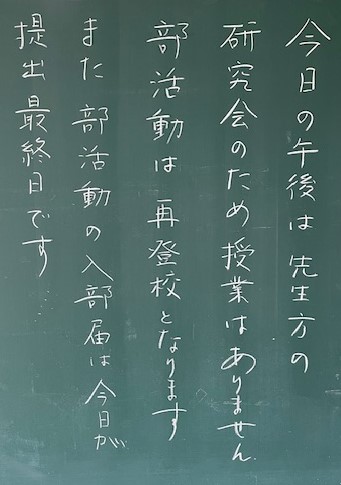 今日の午後は先生方の
研究会のため授業はありません
部活動は再登校となります
また部活動の入部届は今日が
提出最終日です